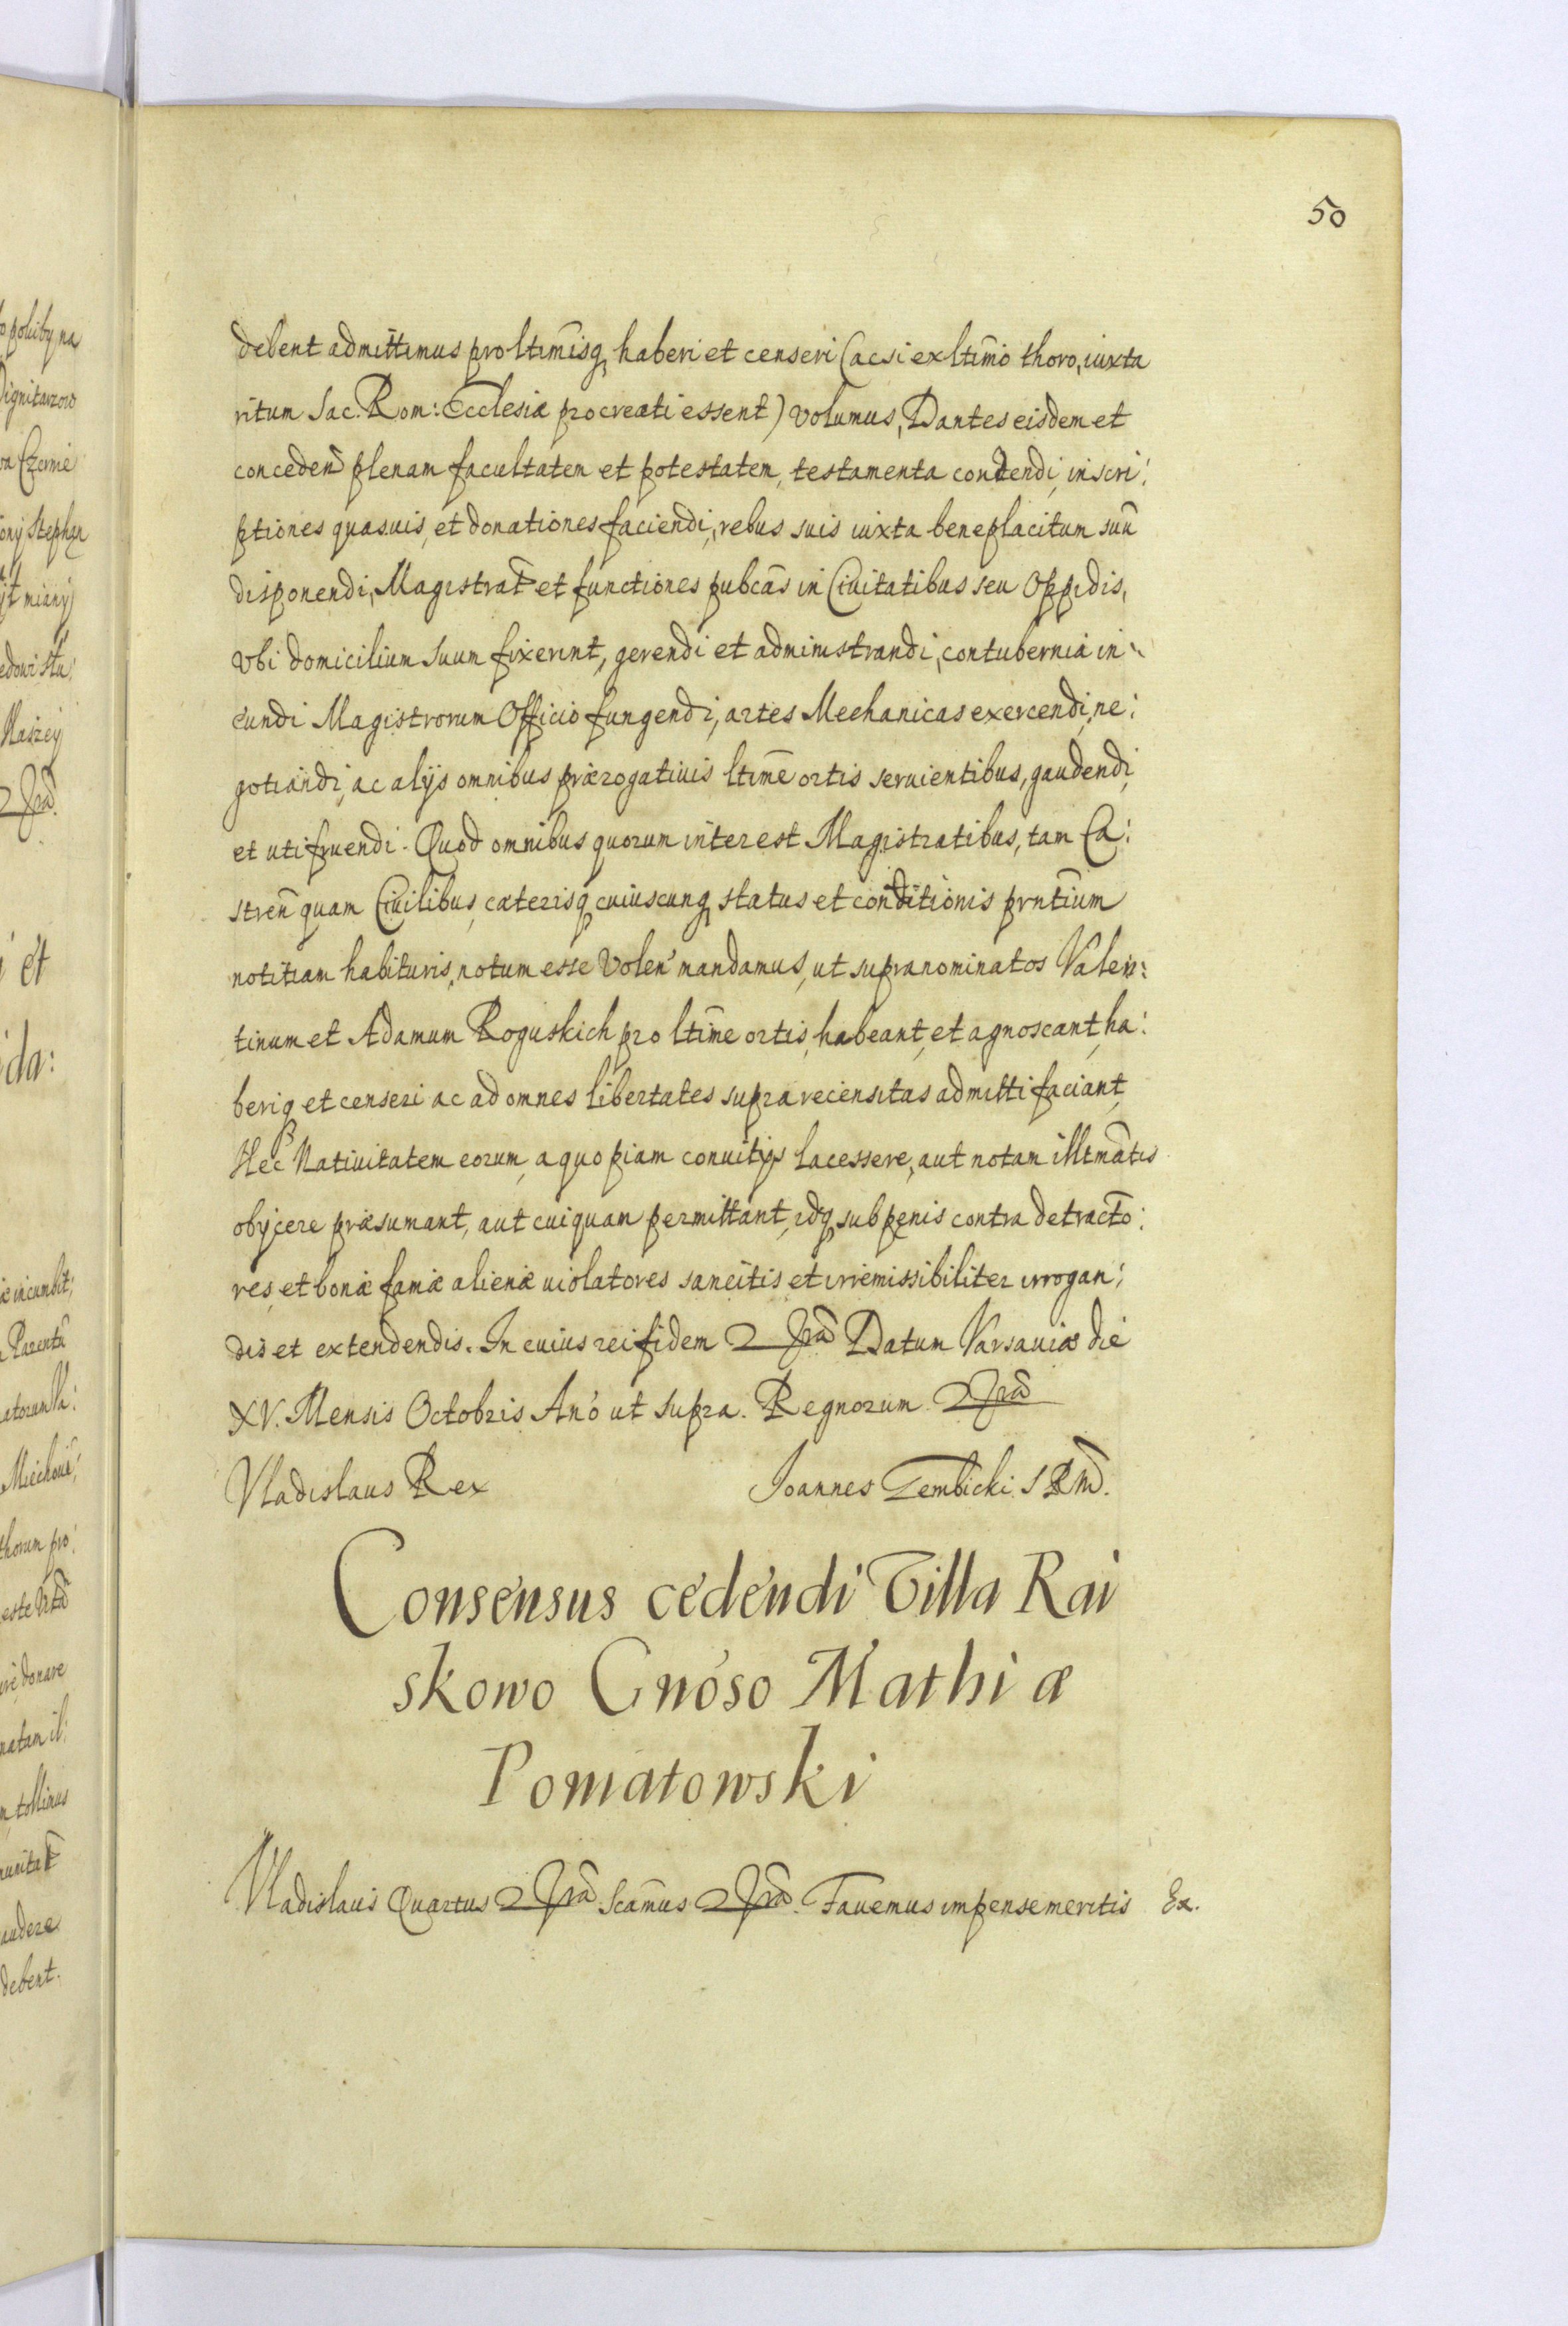 50
debent admittimus pro ltimisq haberi et censeri (ac si ex ltimo thoro, iuxta
ritum Sac. Rom: Ecclesiæ procreati essent) volumus, Dantes eisdem et
conceden plenam facultatem et potestatem, testamenta condendi, inscri:
ptiones quasuis, et donationes faciendi, rebus suis iuxta beneplacitum suū
disponendi, Magistrat et functiones pubcās in Ciuitatibus seu Oppidis,
vbi domicilium suum fixerint, gerendi et administrandi, contubernia in:
eundi Magistrorum Officio fungendi, artes Mechanicas exercendi, ne:
gotiandi, ac alijs omnibus prærogatiuis ltīme ortis seruientibus, gaudendi,
et utifruendi. Quod omnibus quorum interest Magistratibus, tam Ca:
streñ quam Ciuilibus, cæterisq cuiuscunq status et conditionis prntium
notitiam habituris, notum esse volen mandamus, ut supranominatos Valen:
tinum et Adamum Roguskich pro ltīme ortis, habeant, et agnoscant, ha:
beriq et censeri ac ad omnes libertates supra recensitas admitti faciant,
Nec Natiuitatem eorum, a quopiam conuitijs lacessere, aut notam illtmātis
obijcere præsumant, aut cuiquam permittant, idq sub penis contra detracto:
res, et bonæ famæ alienæ uiolatores sancitis et irremissibiliter irrogan:
dis et extendendis. In cuius rei fidem Datum Varsauiæ die
XV. Mensis Octobris Ano ut supra. Regnorum
Vladislaus Rex Joannes Gembicki SRM.
Consensus cedendi Villa Rai
skowo Gnoso Mathiæ
Poniatowski
Vladislaus Quartus Scamus Fauemus impense meritis Ex.